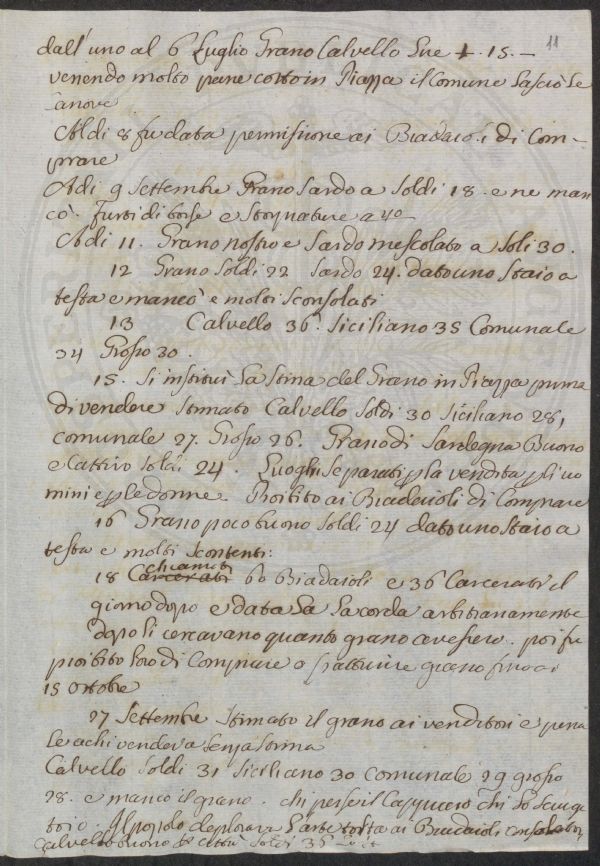 11
dall'uno al 6 Luglio Grano Calvello Lire 1. 15. —
venendo molto pane cotto in Piazza il Comune lasciò le
canove
Adi 8 fu data permissione ai Biadaioli di Com-
prare
Adi 9 Settembre Grano Sardo a Soldi 18. e ne man
cò. furti di borse e
Adi 11. Grano nostro e Sardo mescolato a Soli 30.
12 Grano Soldi 22 Sardo 24. dato uno Staio a
testa e mancò e molti Sconsolati
13 Calvello 36. Siciliano 35 Comunale
34 Grosso 30.
15. Si instituì La Stima del Grano in Piazza prima
di vendere Stimato Calvello Soldi 30 Siciliano 28,
comunale 27. Grosso 26. Grano di Sardegna Buono
e Cattivo Soldi 24. Luoghi Separati p la vendita p li uo
mini e p le donne. Proibito ai Biadaioli di Comprare
16 Grano poco buono Soldi 24 dato uno Staio a
testa e molti Scontenti:
chiamati
18 Carcerati 60 Biadaioli e 36 Carcerati il
giorno dopo e data La la corda arbitrariamente
dopo li cercavano quanto grano avessero. poi fu
proibito loro di Comprare o grano fino ai
15 Ottobre
27 Settembre Stimato il grano ai venditori e pena
le a chi vendeva Senza Stima
Calvello Soldi 31 Siciliano 30 comunale 29 grosso
28. e mancò il grano. chi perse il Cappuccio chi lo Sciuga
toio. Il popolo
Calvello buono Soldi 36